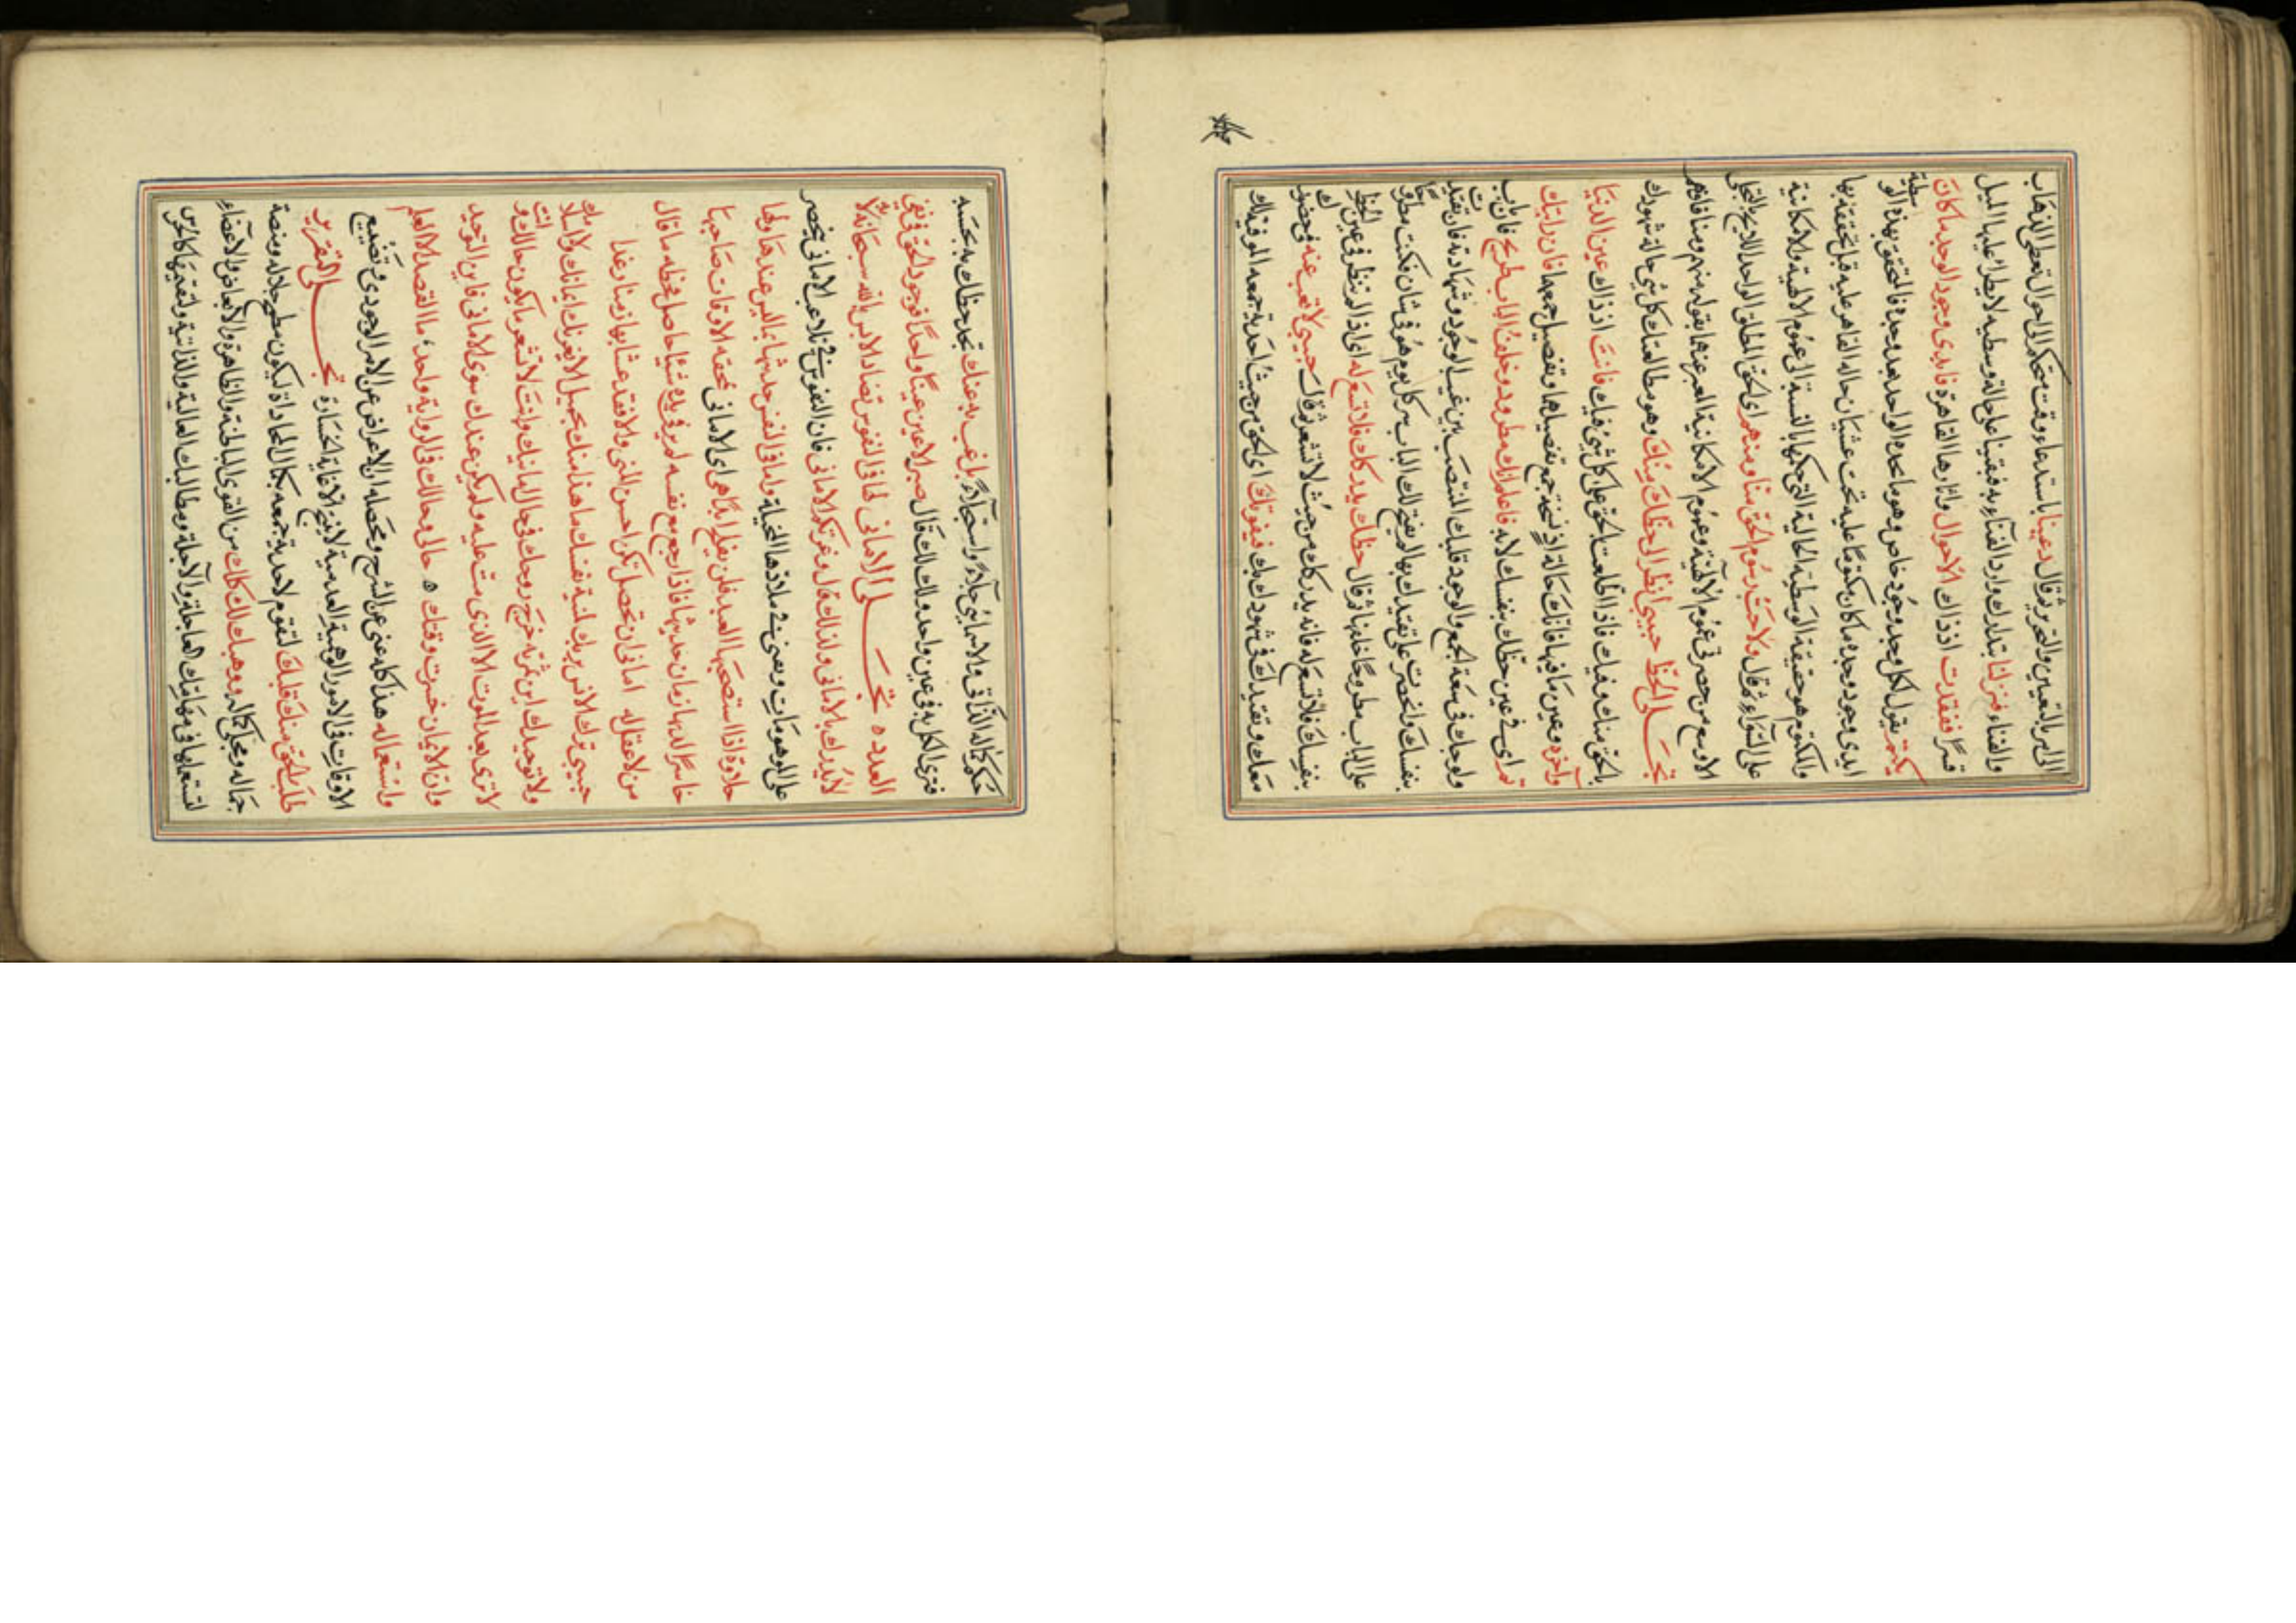 ثم قال دعينا باستدعاء وقت متحكم الاحوال تعطى الذهاب
والفناء فنزلنا بتدارك وارد الفناء به فبقينا على حالة وسطية لا يطرا عليها الميل
قسرا ففقدت اذ ذاك الاحوال واثارها القاهرة فابدى وجود الوجد ما كان
يكتم يقول لكل وجد وجود خاص وهو ما يجده الواحد بعد وجده فالمتحقق بهذه الوسطية
ابدى وجود وجده ما كان مكتوما عليه تحت غشيان حاله القاهر عليه قبل تحققه بها
والمكتوم هو حقيقة الوسطية الحالية التى حكمها بالنسبة الى عموم الالهية والامكانية
على السواء ثم قال ولاحت رسوم الحق منا ومنهم اى الحق المطلق الواحد اللايح بالتجلى
الاوسع من حصر فى عموم الالهية وعموم الامكانية المعبر عنها بقوله منهم ومنا فافهم
تجلى الحظ حبيبى انظر الى حظك منك وهو مطالعتك كل شى حالة شهودك
بالحق منك وفيك فاذا اطلعت بالحق على كل شى فيك فانت اذ ذاك عين الدنيا
والاخرة وعين ما فيها فانك حالة اذ نسخة جمع تفصيلها وتفصيل جمعها فان رايتك
ثم اى فى عين حظك بنفسك لا به فاعلم انك مطرود وخلف الباب طريح فان باب
ولوجك فى سعة الجمع والوجود قلبك المنتصب بين غيب الوجود وشهادته فان تقيدت
بنفسك وانحصرت على تقيدك بها لم يفتح لك الباب سر كل يوم هو فى شان فكنت مطروحا
على الباب مطروحا خلفها ثم قال حظك يدركك فلا تسع له اى اذا لم تنظر فى عين الحظ
بنفسك فلا تسع له فانه يدركك من حيث لا تشعر ثم قال حبيبى لا تغب عنه فى حضورك
معك وتقيدك فى شهودك بك فيفوتك اى الحق من حيث احدية جمعه الموفية لك
حكم كماله الذاتى والاسمائى جلاء واستجلاء بل غب به عنك تجد حظك به بحسبه
فترى الكل به فى عين واحد ولذلك قال صير الاعين عينا واحدا فوجود الحق فى نفى
العدد ه تجلى الامانى لما فى النفوس تضاد الامر بالله سبحانه لانه
لا يدرك بالامانى ولذلك قال وغرتكم الامانى فان النفوس فى تلاعب الامانى تنحصر
على الموهومات وتمضى فى ملاذها المخيلة وامانى النفس حديثها بما ليس عندها ولها
حلاوة اذا استصحبها العبد فلن يفلح ابدا هى اى الامانى ممحقة الاوقات صاحبها
خاسر لذتها زمان حديثها فاذا رجع مع نفسه لم ير فى يده شيئا حاصلا فحظه ما قال
من لا عقل له امانى ان تحصل تكن احسن المنى والا فقد عشنا بها زمنا رغدا
حبيبى ترك الانس بربك لمنية نفسك ما هذا منك بجميل لا يغرنك ايمانك ولا اسلامك
ولا توحيدك اين ثمرته خرج روحك فى حال امانيك وانت لا تشعر ما يكون حالك وانت
لا ترى بعد الموت الا الذى مت عليه ولم يكن عندك سوى الامانى فاين التوحيد
واين الايمان خسرت وقتك ه حالى وحالك فى الرواية واحد ما القصد الا العلم
واستعماله هذا كله غنى عن الشرح ومحصله ان الاعراض عن الامر الوجودى وتضييع
الاوقات فى الامور الوهمية العدمية لا ينتج الا غاية الخسارة تجلى التقرير
طلب الحق منك قلبك لتقوم لاحدية جمعه بكمال المحاذاة ليكون مطمح جلاله ومنصة
جماله ومجلى كماله ووهبك لك كلك من القوى الباطنة والظاهرة والابعاض والاعضاء
لتستعملها فى مهامك العاجلة والاجلة ومطالبك العالية والذاتية ولتقيمها كالحرس